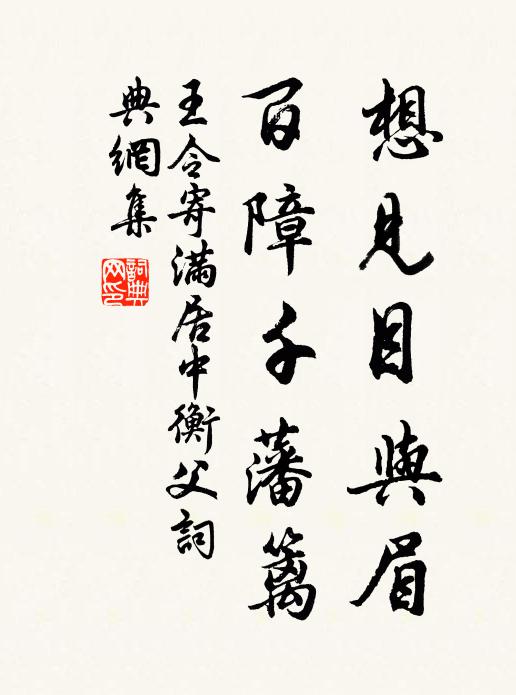 想見目與眉
百障千藩籬
王令寄滿居中衡父詞
典網集
詞典网印